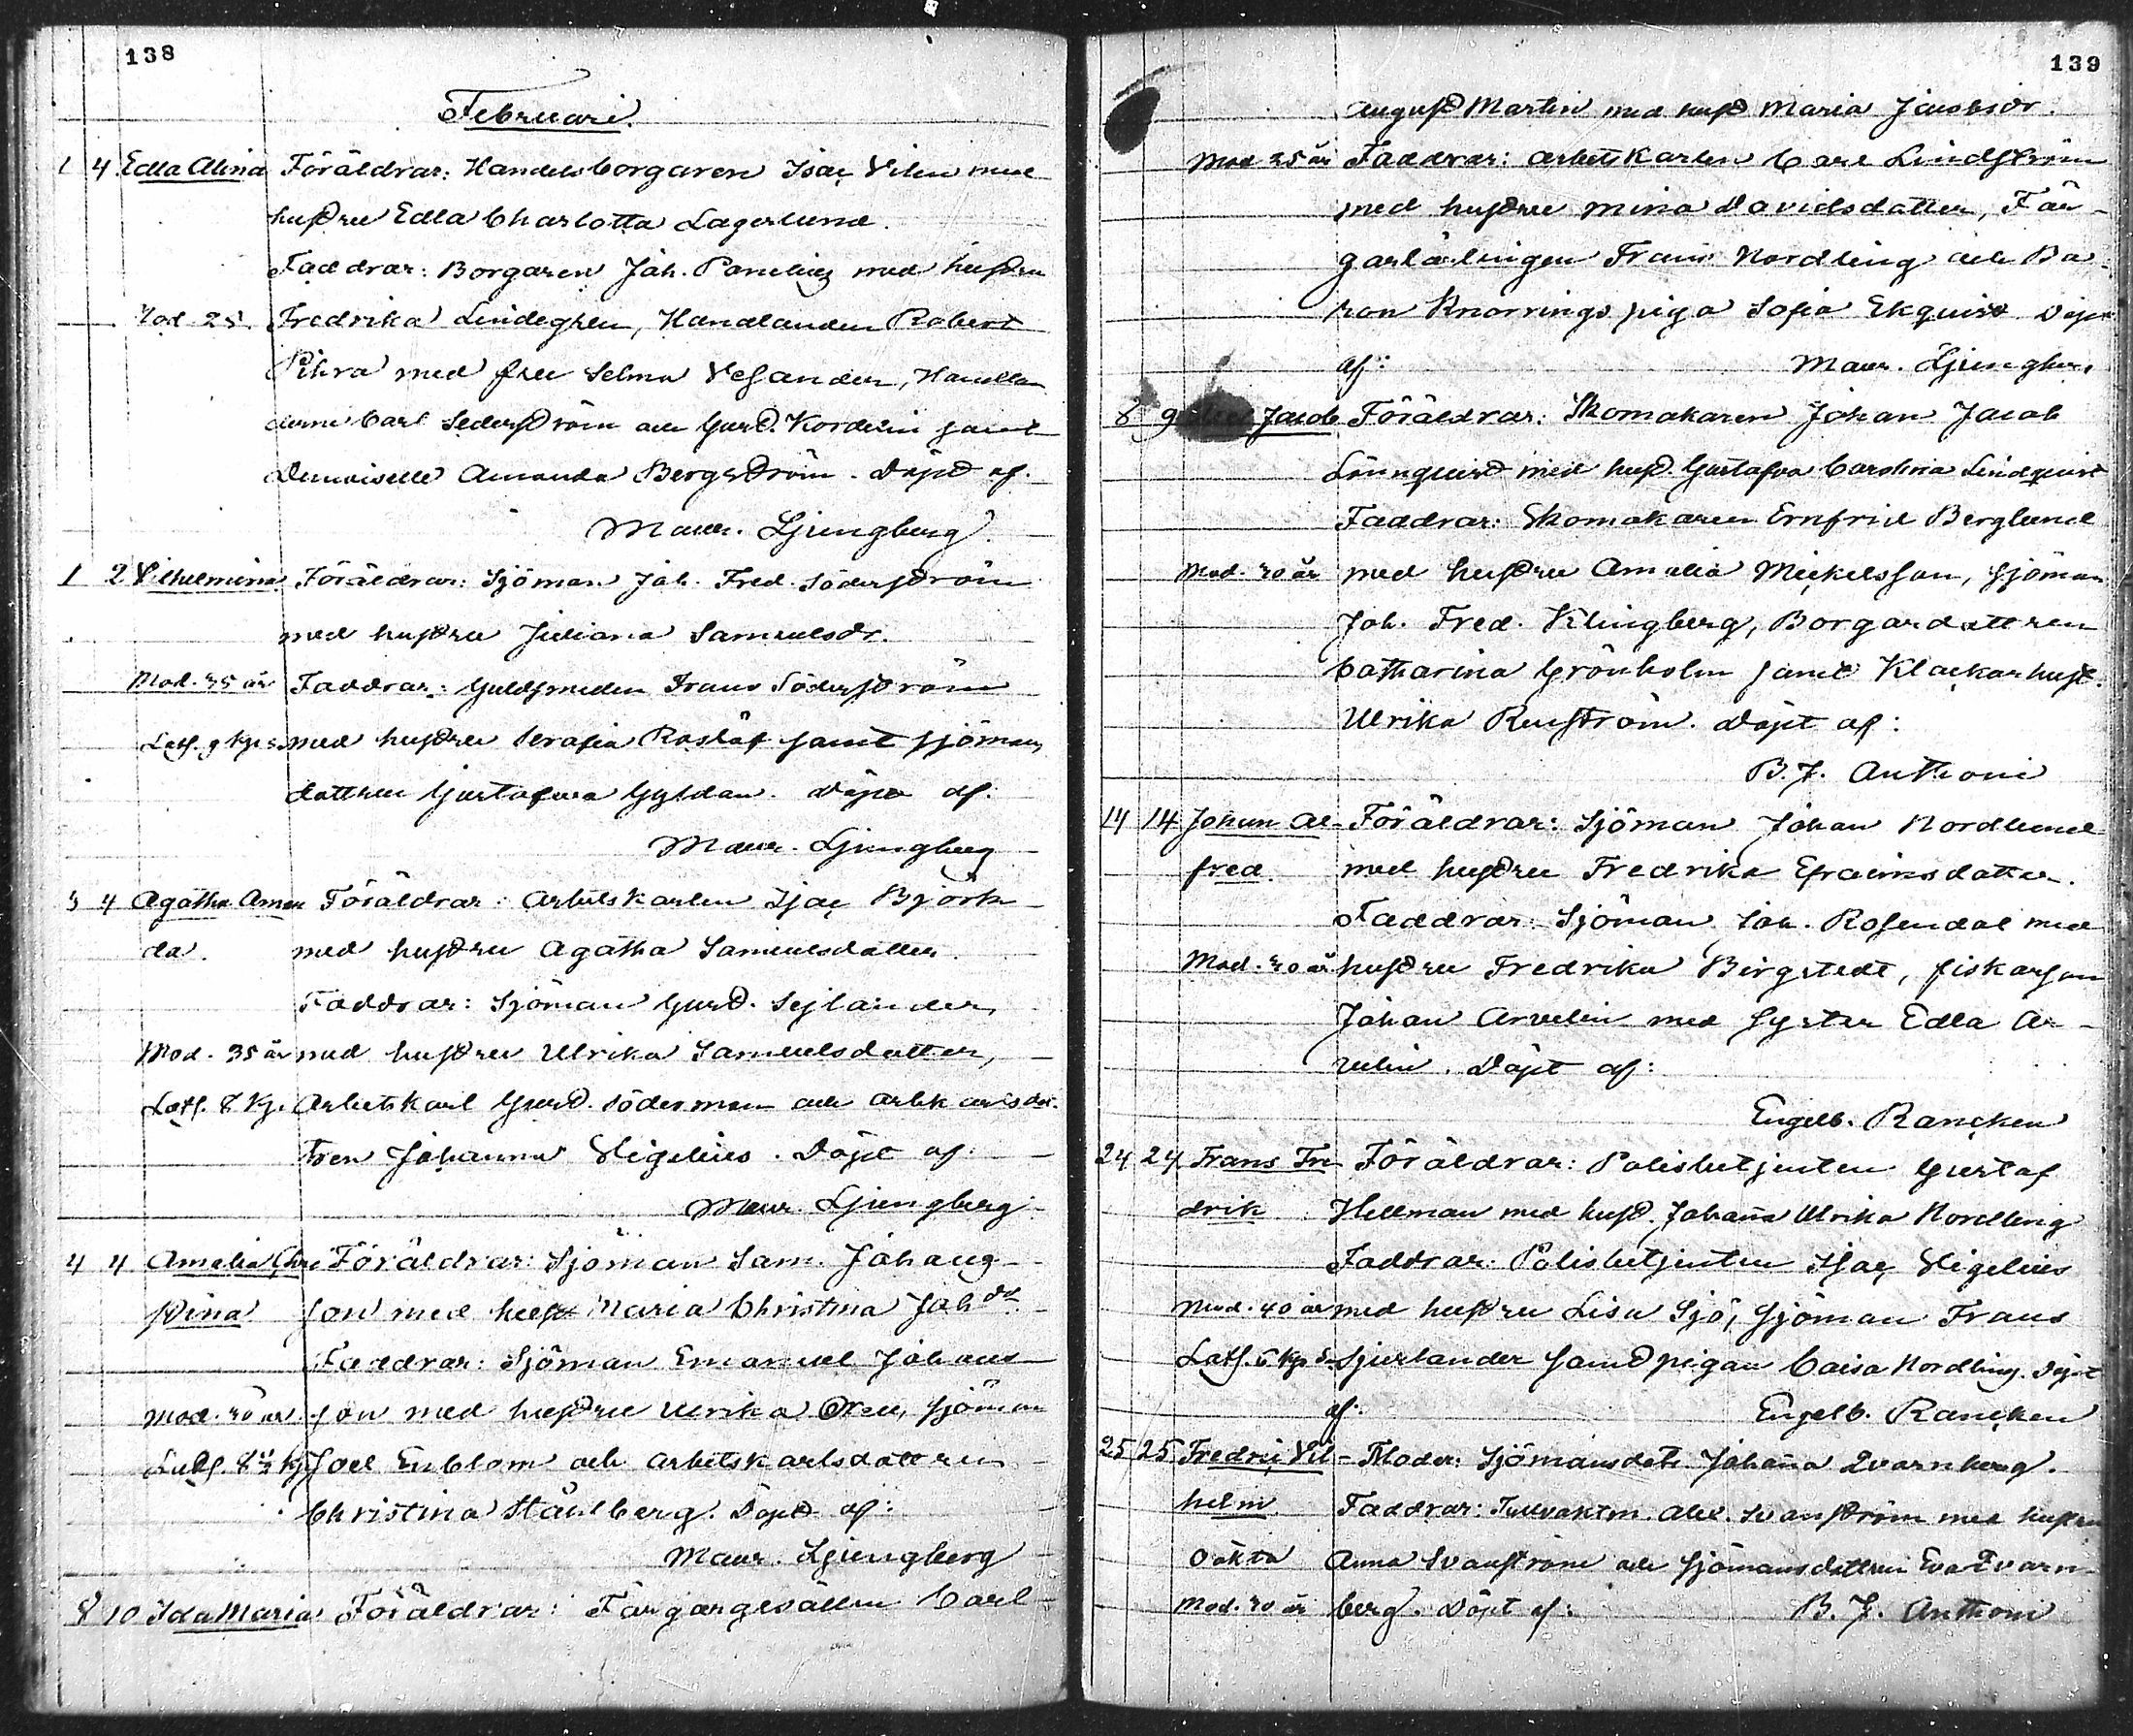 138
Februari.
1 4 Edla Alina Föräldrar: Handelsborgaren Isac Vilen med
hustru Edla Charlotta Lagerlund.
Faddrar: Borgaren Joh. Pomelius med hustru
Mod. 25. Fredrika Lindeghren, Handlanden Robert
Pihra med fru Selma Vesander, Handlan
derne Carl Sederström och Gust. Kordelin samt
Demoiselle Amanda Bergström. Döpt af.
Maur. Ljungberg.
1 2 Vilhelmina. Föräldrar: Sjöman Joh. Fred. Söderström
med hustru Juliana Samuelsdr.
Mod. 35 år Faddrar: Guldsmeden Frans Söderström
Latf. 9 Kp. s. med hustru Serafia Roslöf samt sjömans
dottren Gustafva Gyldan. Döpt af:
Maur. Ljungberg
3 4 Agatha Aman Föräldrar: Arbetskarlen Isac Björk
da. med hustru Agatha Samuelsdatter.
Faddrar: Sjöman Gust. Sejlander,
Mod. 35 år med hustru Ulrika Samuelsdatter,
Latf. 8 Kp. Arbetskarl Gust. Söderman och arbk arlsdot.
tren Johanna Sligelius. Döpt af:
Maur. Ljungberg
4 4 Amalia Chri Föräldrar: Sjöman Sam. Johans
stina son med hust Maria Christina Joh dr.
Faddrar: Sjöman Emanuel Johans
Mod. 30 år. son med hustru Ulrika Oxen, sjöman
Lutf. 8 1/2 Kp Joel Enblom och arbetskarlsdottren
Christina Ståhlberg. Döpt af:
Maur. Ljungberg
8 10 Ida Maria Föräldrar: Färgargesällen Carl
139
August Martin med hust Maria Jacobsdr.
Mod 25 år Faddrar: arbetskarlen Carl Lindström
med hustru Mina Davidsdatter, Fär-
garlärlingen Frans Nordling och Ba
ron Knorrings piga Sofia Ekquist Döpt
af: Maur. Ljungberg
8 9 Jacob Föräldrar: Skomakaren Johan Jacob
Lönnquist med hust. Gustafva Carolina Lindquist
Faddrar: Skomakaren Ernfrid Berglund
Mod. 30 år med hustru Amalia Mickelsson, sjöman
Joh. Fred. Klingberg, Borgardottren
Catharina Grönholm samt Klockarhust.
Ulrika Renström. Döpt af:
B. J. Anthoni
14 14 Johan Al- Föräldrar: Sjöman Johan Nordlund
fred. med hustru Fredrika Efraimsdatter.
Faddrar: Sjöman Joh. Rosendal med
Mod. 30 år hustru Fredrika Birgstedt, fiskarson
Johan Arvelin med syster Edla Ar-
velin. Döpt af:
Engelb. Rancken
24 24 Frans Fre Föräldrar: Polisbetjenten Gustaf
drik Hellman med hust. Johanna Ulrika Nordling
Faddrar: Polisbetjenten Isac Sligelius
Mod. 40 år med hustru Lisa Sjö, Sjöman Frans
Latf. 6 Kp s. Sjurlander samt pigan Caisa Nordling. Döpt
af: Engelb. Rancken
25 25 Fredric Vil- Moder: Sjömansdotr. Johanna Qvarnberg.
helm Faddrar: Tullvaktm. Alex. Svanström med hustru
Oäkta Anna Svanström och Sjömansdottren Eva Qvarn-
Mod. 30 år berg. Döpt af: B. J. Anthoni